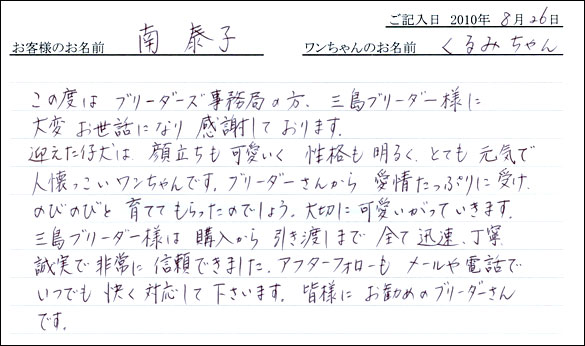 ご記入日 2010年 8月26日
お客様のお名前 南 泰子 ワンちゃんのお名前 くるみちゃん
この度は ブリーダーズ事務局の方、三島ブリーダー様に
大変 お世話になり 感謝して おります。
迎えた仔犬は 顔立ちも 可愛いく 性格も 明るく、とても 元気で
人懐っこい ワンちゃんです。ブリーダーさんから 愛情たっぷりに 受け、
のびのびと 育てて もらったのでしょう。大切に 可愛いがっていきます。
三島ブリーダー様は 購入から 引き渡しまで 全て 迅速、丁寧、
誠実で 非常に 信頼できました、アフターフォローも メールや電話で
いつでも 快く 対応して 下さいます。皆様に お勧めのブリーダーさん
です。